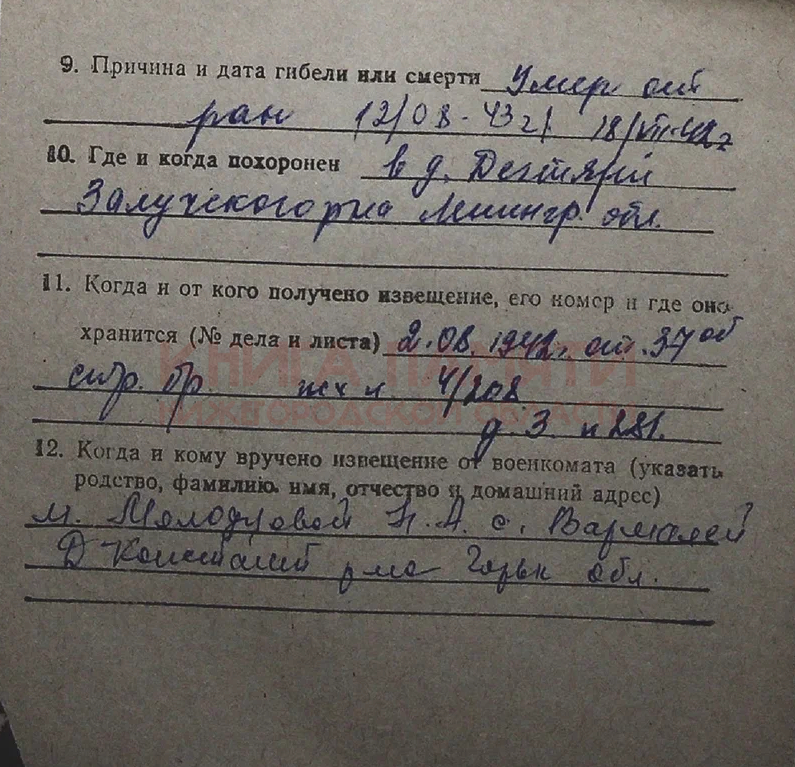 9. Причина и дата гибели или смерти Умер от
ран 12/08-43г/ 18/VIII-42г
10. Где и когда похоронен в д. Дегтяри
Залучского р-на Ленингр. обл.
11. Когда и от кого получено извещение, его номер и где оно
хранится (№ дела и листа) 2.08.1942г. от. 37 об
КНИГА ПАМЯТИ
стр. бр. 4/208
НИЖЕГОРОДСКОЙ ОБЛАСТИ
д. 3. л 281.
12. Когда и кому вручено извещение от военкомата (указать
родство, фамилию, имя, отчество и домашний адрес)
м. Молодцовой Н. А. с. Вармалей
Д Констант р-на Горьк обл.